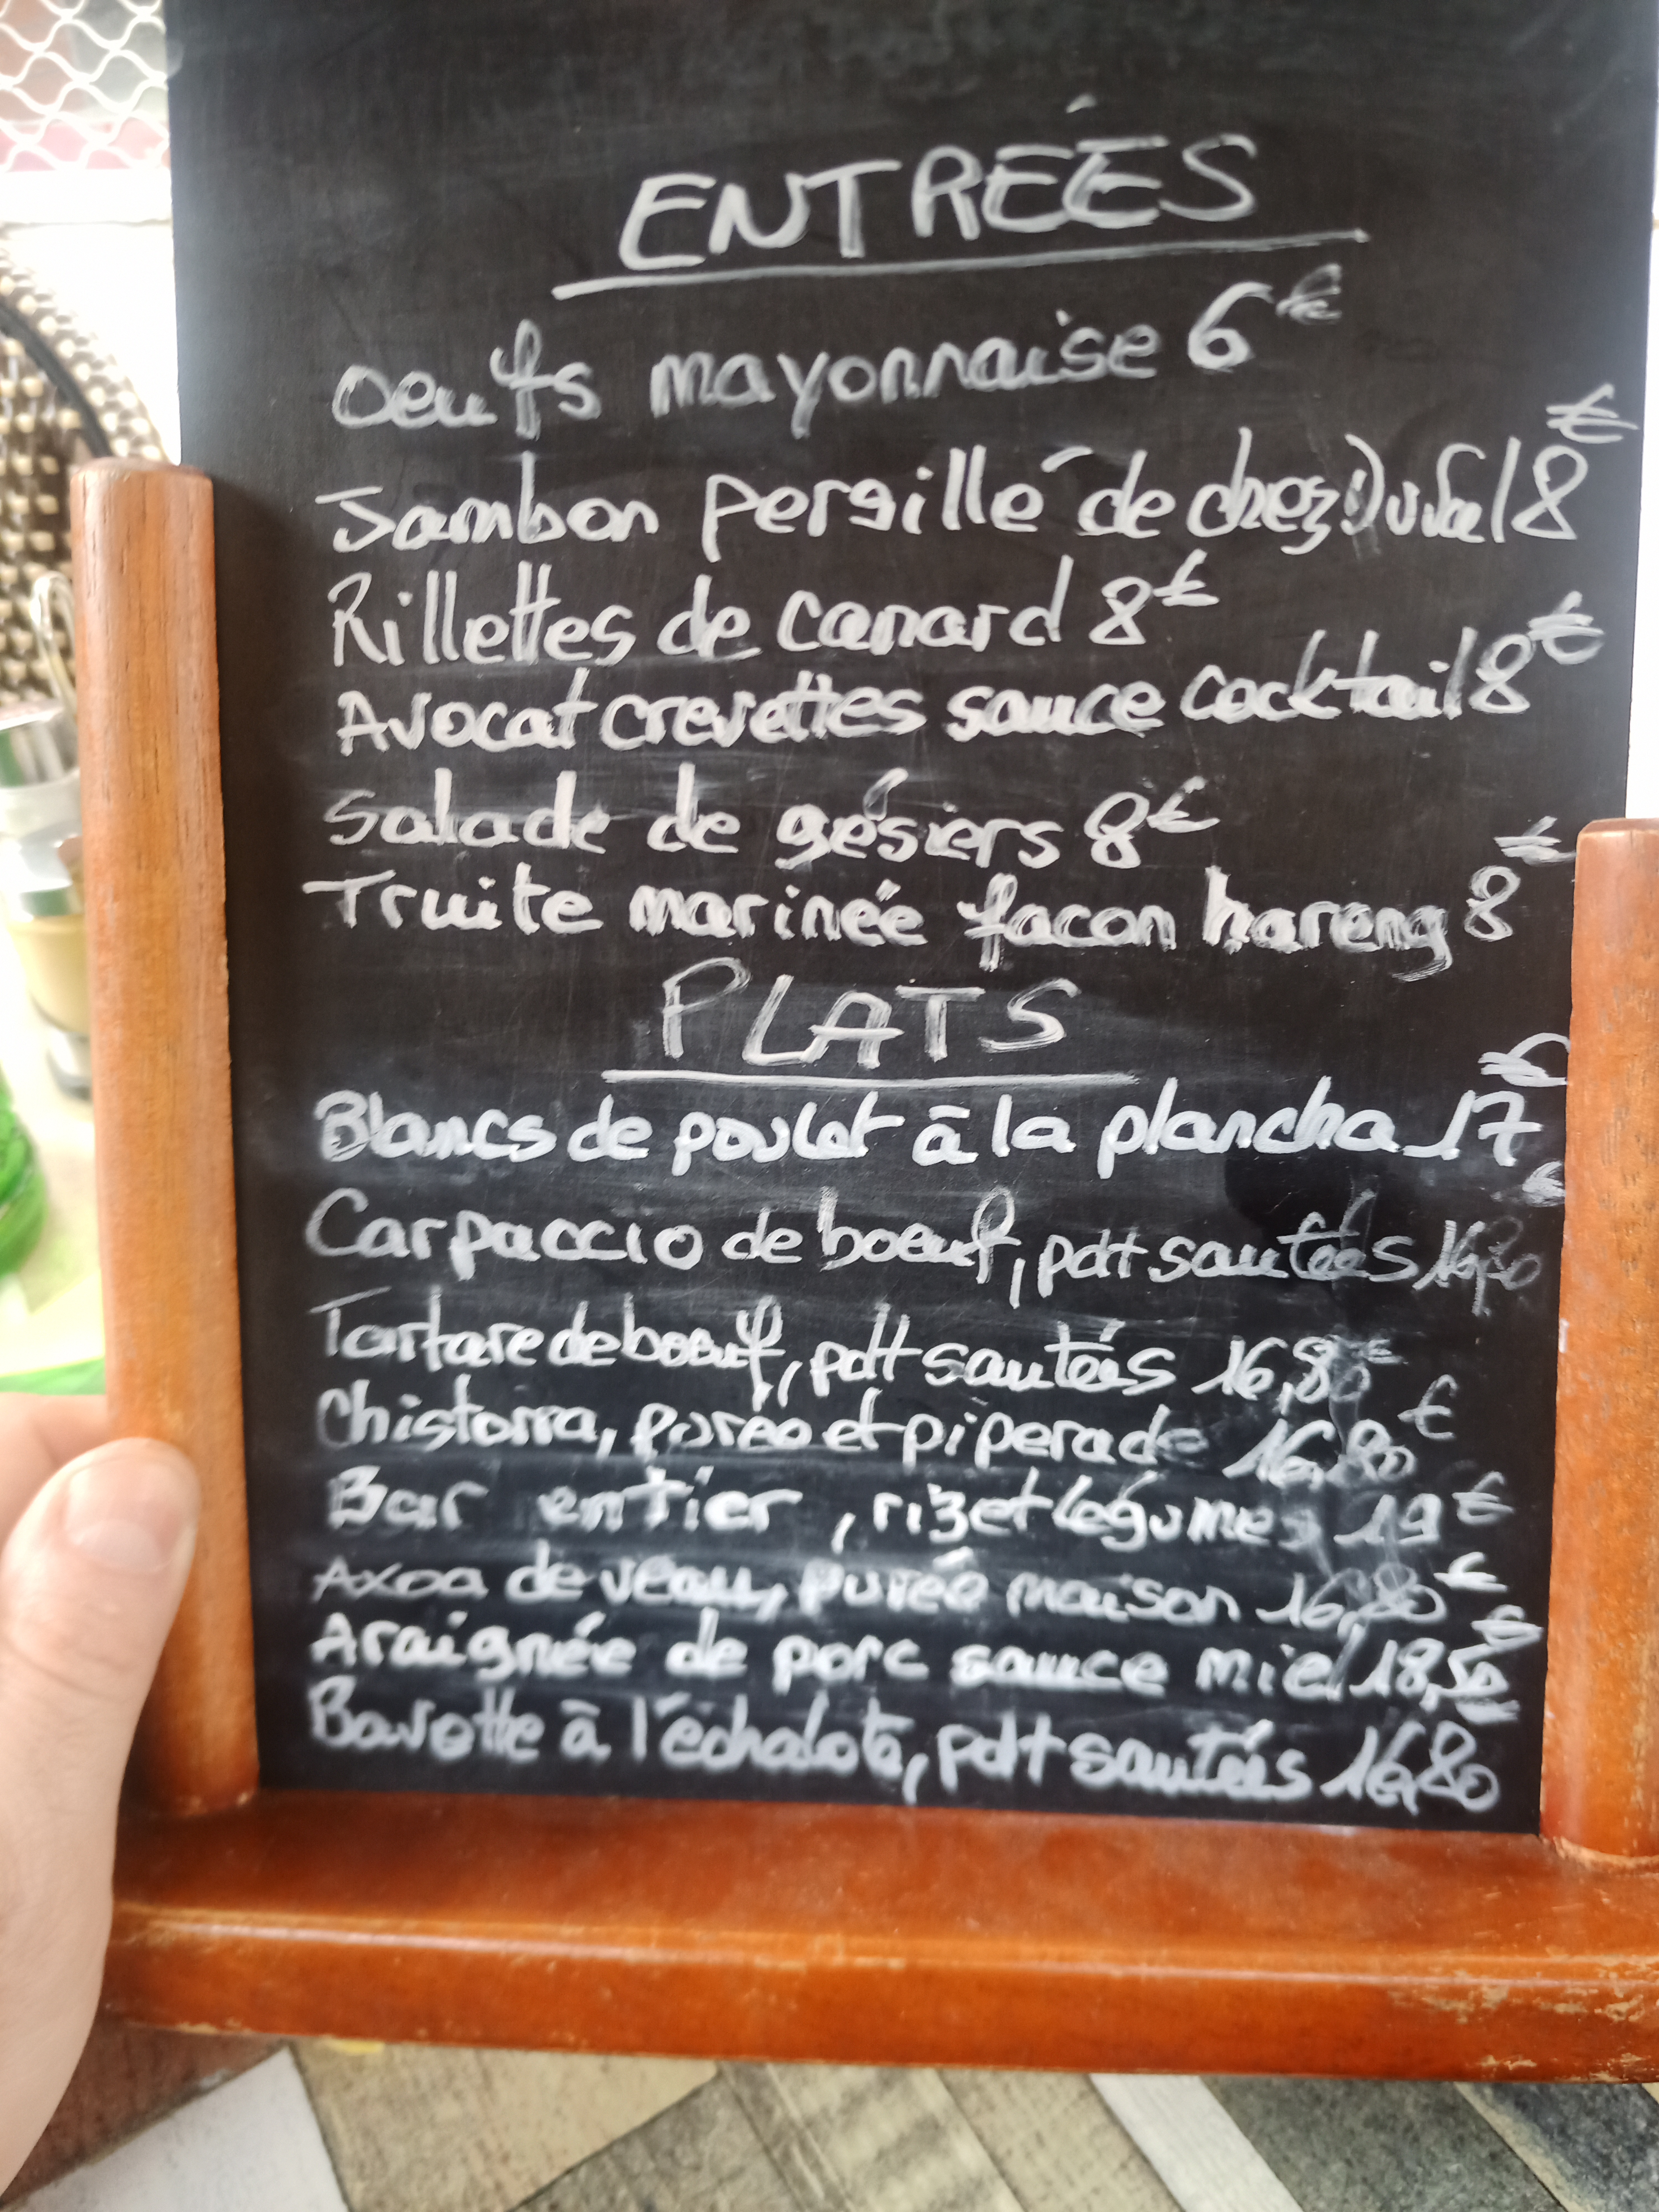 ENTRÉES
oeufs mayonnaise 6€
Jambon persillé de chez Duval 8€
Rillettes de canard 8€
Avocat crevettes sauce cocktail 8€
Salade de gésiers 8€
Truite marinée facon hareng 8€
PLATS
Blancs de poulet à la plancha 17€
Carpaccio de boeuf, pdt sautées 16,80€
Tartare de boeuf, pdt sautées 16,80€
Chistorra, purée et piperade 16,80€
Bar entier, riz et légumes 19€
Axoa de veau, purée maison 16,80€
Araignée de porc sauce miel 18,50€
Bavette à l'échalote, pdt sautées 16,80€